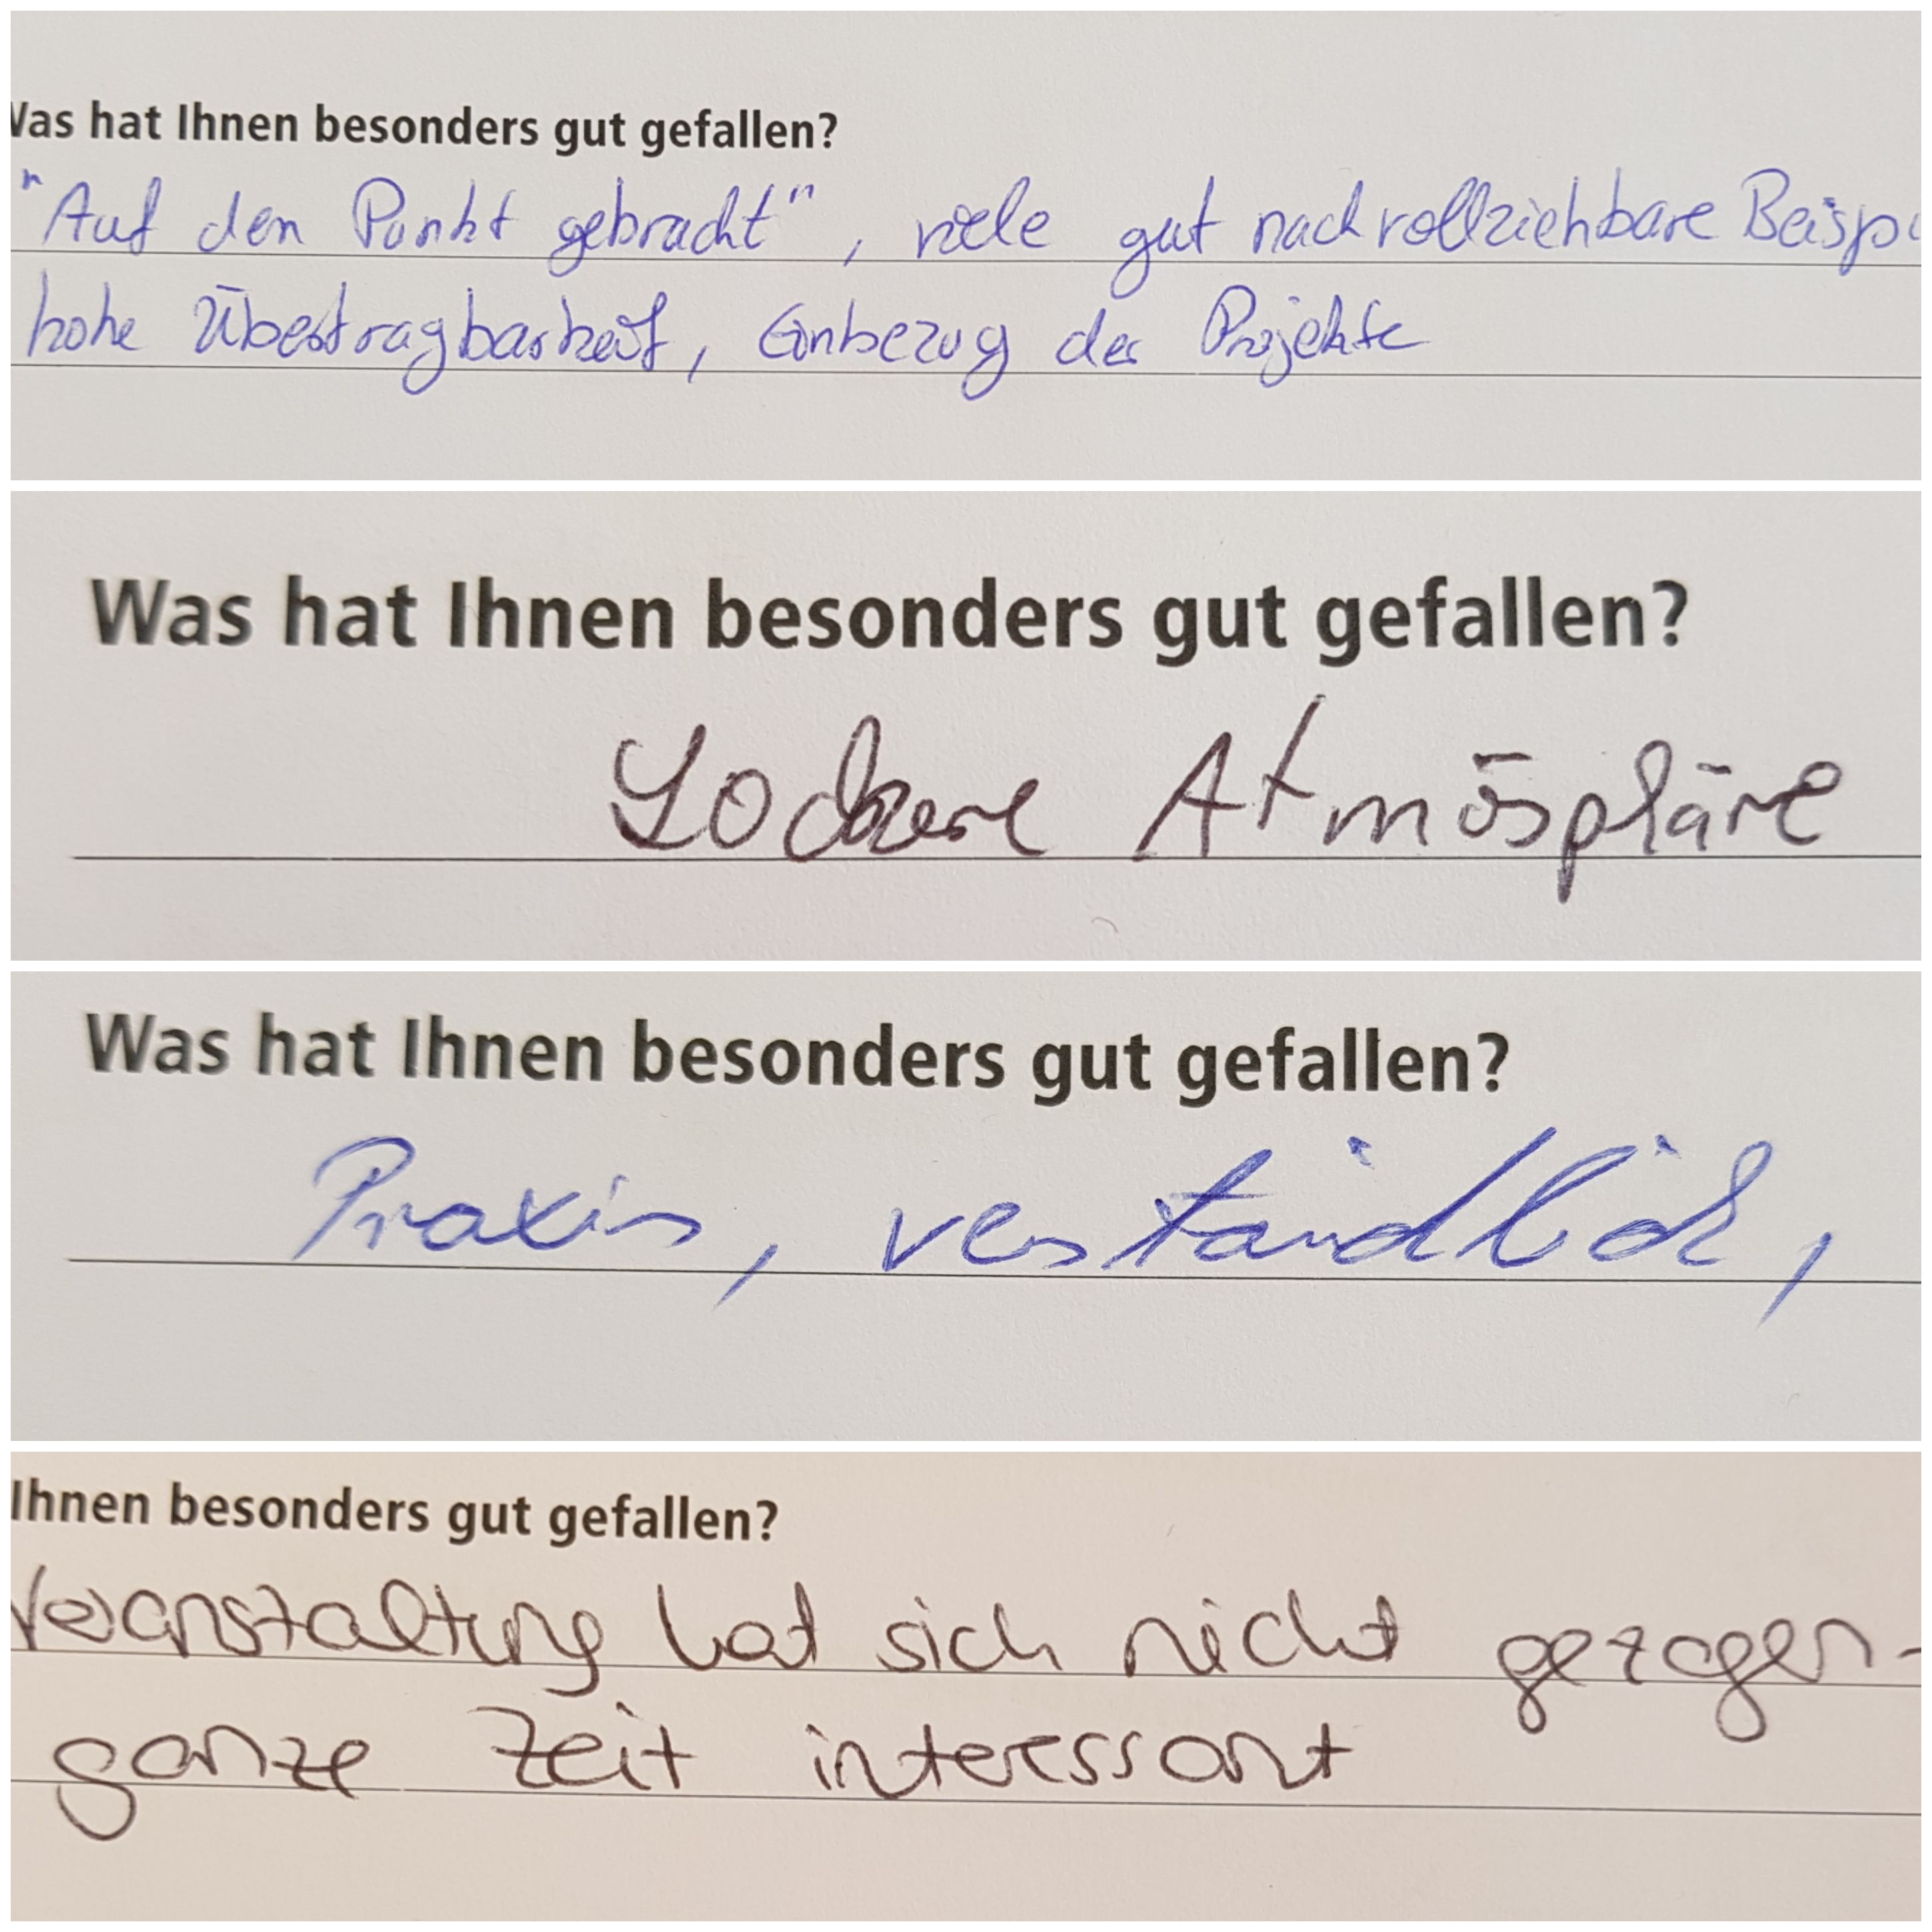 Was hat Ihnen besonders gut gefallen?
"Auf den Punkt gebracht", viele gut nachvollziehbare Beispi
hohe Übertragbarkeit, Einbezug der Projekte
Was hat Ihnen besonders gut gefallen?
Lockere Atmösphäre
Was hat Ihnen besonders gut gefallen?
Praxis, verständlich,
Ihnen besonders gut gefallen?
Veranstaltung hat sich nicht gezogen-
ganze Zeit interessant